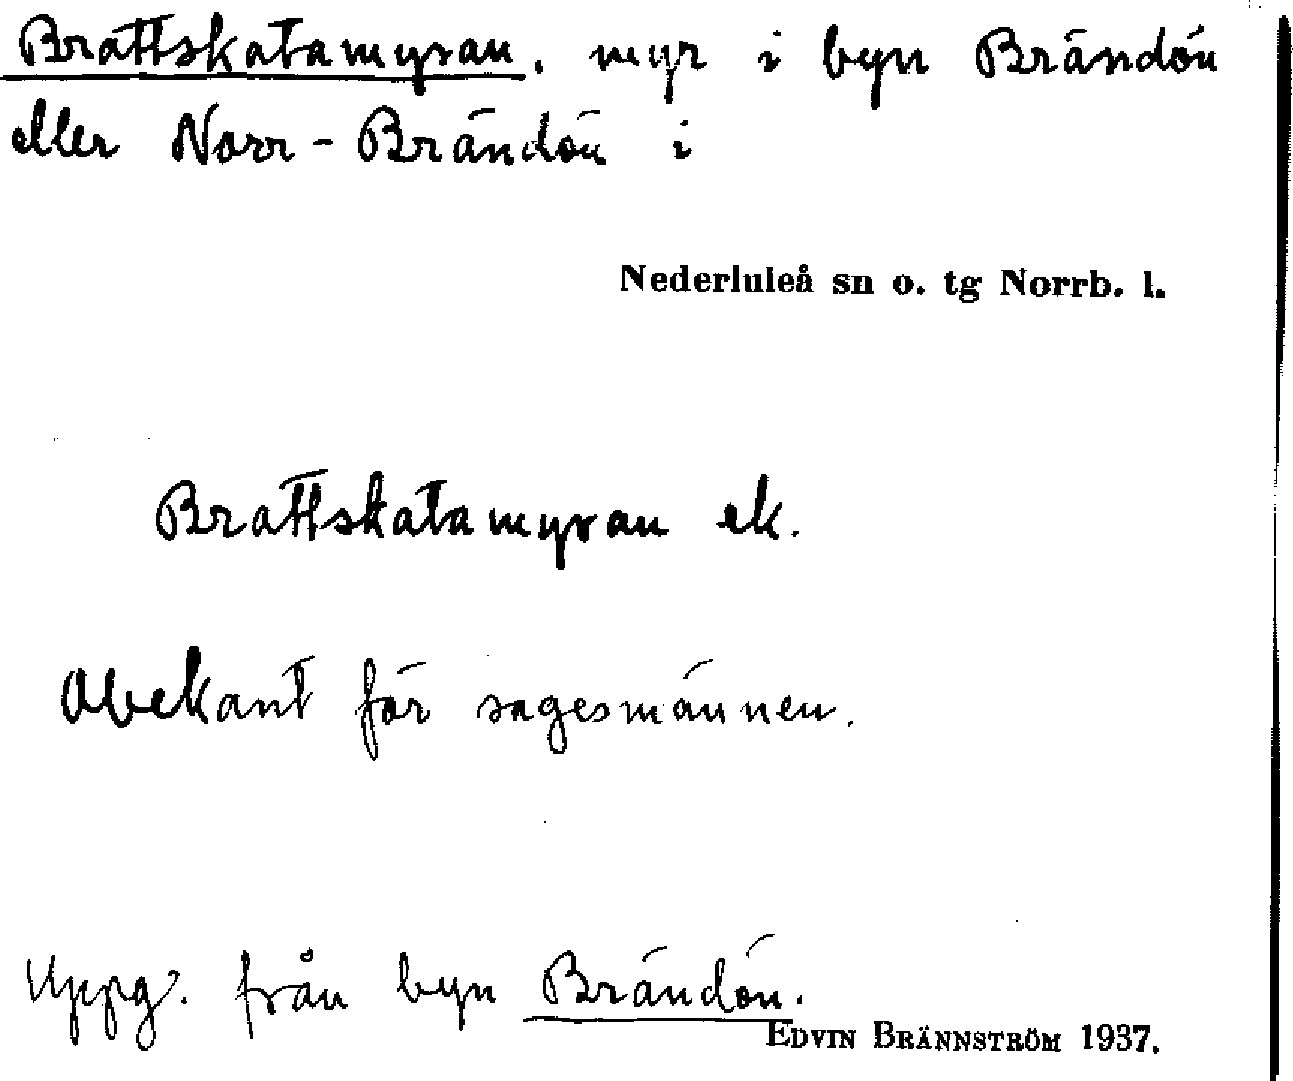 Brattskatamyran, myr i byn Brändön
eller Norr-Brändön i
Nederluleå sn o. tg Norrb. l.
Brattskatamyran ek.
Obekant för sagesmännen.
Uppg. från byn Brändön.
EDVIN BRÄNNSTRÖM 1937.